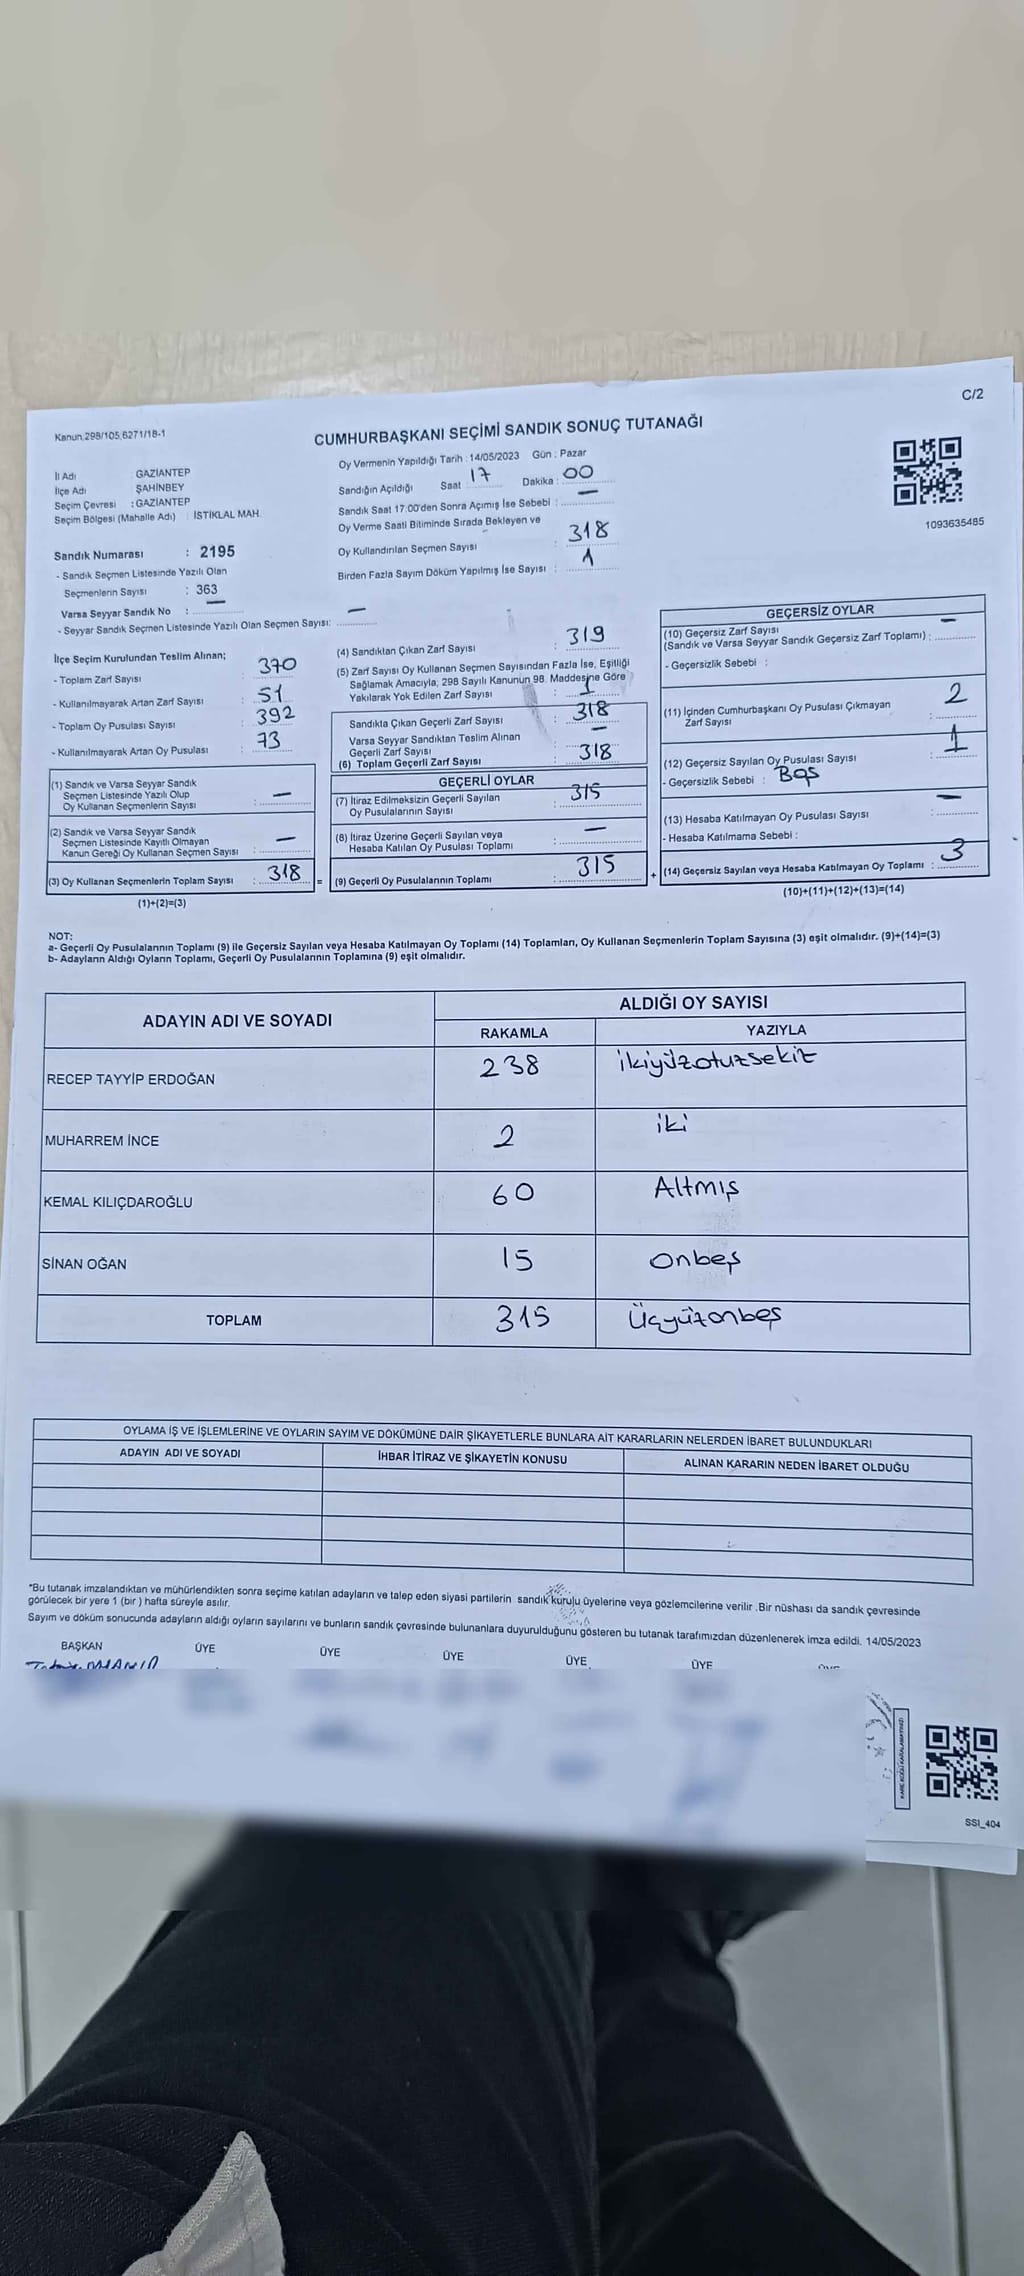 C/2
Kanun.298/105,6271/18-1
CUMHURBAŞKANI SEÇİMİ SANDIK SONUÇ TUTANAĞI
1093635485
İl Adı : GAZİANTEP
İlçe Adı : ŞAHİNBEY
Seçim Çevresi : GAZİANTEP
Seçim Bölgesi (Mahalle Adı) : İSTİKLAL MAH.
Sandık Numarası : 2195
- Sandık Seçmen Listesinde Yazılı Olan
Seçmenlerin Sayısı : 363
Varsa Seyyar Sandık No : —
- Seyyar Sandık Seçmen Listesinde Yazılı Olan Seçmen Sayısı: —
Oy Vermenin Yapıldığı Tarih : 14/05/2023 Gün : Pazar
Sandığın Açıldığı Saat 17 Dakika : 00
Sandık Saat 17:00'den Sonra Açımış İse Sebebi : —
Oy Verme Saati Bitiminde Sırada Bekleyen ve
Oy Kullandırılan Seçmen Sayısı : 318
Birden Fazla Sayım Döküm Yapılmış İse Sayısı : 1
İlçe Seçim Kurulundan Teslim Alınan;
- Toplam Zarf Sayısı : 370
- Kullanılmayarak Artan Zarf Sayısı : 51
- Toplam Oy Pusulası Sayısı : 392
- Kullanılmayarak Artan Oy Pusulası : 73
(1) Sandık ve Varsa Seyyar Sandık
Seçmen Listesinde Yazılı Olup
Oy Kullanan Seçmenlerin Sayısı : —
(2) Sandık ve Varsa Seyyar Sandık
Seçmen Listesinde Kayıtlı Olmayan
Kanun Gereği Oy Kullanan Seçmen Sayısı : —
(3) Oy Kullanan Seçmenlerin Toplam Sayısı : 318 =
(1)+(2)=(3)
(4) Sandıktan Çıkan Zarf Sayısı : 319
(5) Zarf Sayısı Oy Kullanan Seçmen Sayısından Fazla İse, Eşitliği
Sağlamak Amacıyla, 298 Sayılı Kanunun 98. Maddesine Göre
Yakılarak Yok Edilen Zarf Sayısı : 1
Sandıkta Çıkan Geçerli Zarf Sayısı : 318
Varsa Seyyar Sandıktan Teslim Alınan
Geçerli Zarf Sayısı : —
(6) Toplam Geçerli Zarf Sayısı : 318
GEÇERLİ OYLAR
(7) İtiraz Edilmeksizin Geçerli Sayılan
Oy Pusulalarının Sayısı : 315
(8) İtiraz Üzerine Geçerli Sayılan veya
Hesaba Katılan Oy Pusulası Toplamı : —
(9) Geçerli Oy Pusulalarının Toplamı : 315 +
GEÇERSİZ OYLAR
(10) Geçersiz Zarf Sayısı
(Sandık ve Varsa Seyyar Sandık Geçersiz Zarf Toplamı) : —
- Geçersizlik Sebebi :
(11) İçinden Cumhurbaşkanı Oy Pusulası Çıkmayan
Zarf Sayısı : 2
(12) Geçersiz Sayılan Oy Pusulası Sayısı : 1
- Geçersizlik Sebebi : Boş
(13) Hesaba Katılmayan Oy Pusulası Sayısı : —
- Hesaba Katılmama Sebebi :
(14) Geçersiz Sayılan veya Hesaba Katılmayan Oy Toplamı : 3
(10)+(11)+(12)+(13)=(14)
NOT:
a- Geçerli Oy Pusulalarının Toplamı (9) ile Geçersiz Sayılan veya Hesaba Katılmayan Oy Toplamı (14) Toplamları, Oy Kullanan Seçmenlerin Toplam Sayısına (3) eşit olmalıdır. (9)+(14)=(3)
b- Adayların Aldığı Oyların Toplamı, Geçerli Oy Pusulalarının Toplamına (9) eşit olmalıdır.
ADAYIN ADI VE SOYADI ALDIĞI OY SAYISI
RAKAMLA YAZIYLA
RECEP TAYYİP ERDOĞAN 238 ikiyüzotuzsekiz
MUHARREM İNCE 2 iki
KEMAL KILIÇDAROĞLU 60 Altmış
SİNAN OĞAN 15 onbeş
TOPLAM 315 Üçyüzonbeş
OYLAMA İŞ VE İŞLEMLERİNE VE OYLARIN SAYIM VE DÖKÜMÜNE DAİR ŞİKAYETLERLE BUNLARA AİT KARARLARIN NELERDEN İBARET BULUNDUKLARI
ADAYIN ADI VE SOYADI İHBAR İTİRAZ VE ŞİKAYETİN KONUSU ALINAN KARARIN NEDEN İBARET OLDUĞU
*Bu tutanak imzalandıktan ve mühürlendikten sonra seçime katılan adayların ve talep eden siyasi partilerin sandık kurulu üyelerine veya gözlemcilerine verilir .Bir nüshası da sandık çevresinde
görülecek bir yere 1 (bir ) hafta süreyle asılır.
Sayım ve döküm sonucunda adayların aldığı oyların sayılarını ve bunların sandık çevresinde bulunanlara duyurulduğunu gösteren bu tutanak tarafımızdan düzenlenerek imza edildi. 14/05/2023
BAŞKAN ÜYE ÜYE ÜYE ÜYE ÜYE
SSI_404